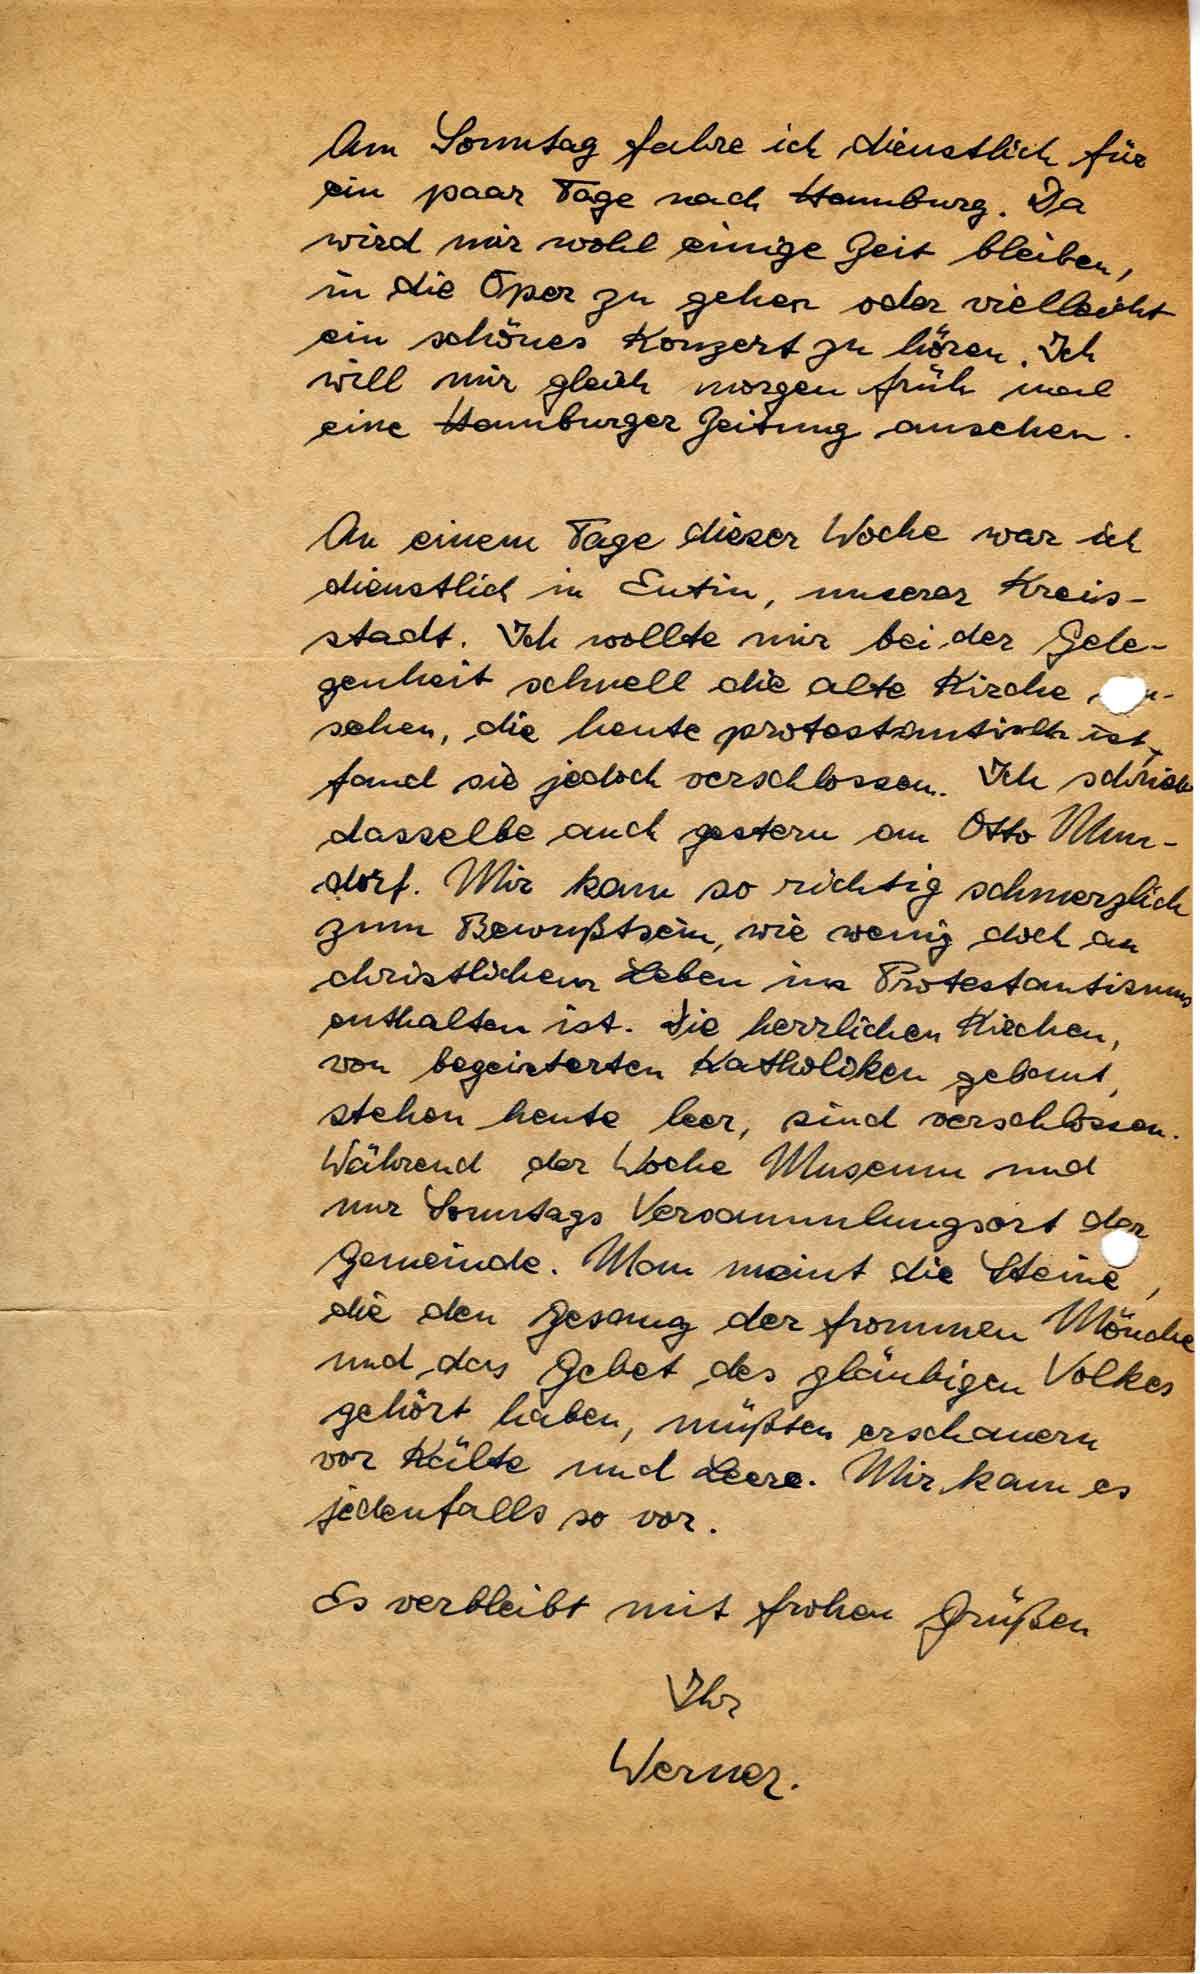 Am Sonntag fahre ich dienstlich für
ein paar Tage nach Hamburg. Da
wird mir wohl einige Zeit bleiben,
in die Oper zu gehen oder vielleicht
ein schönes Konzert zu hören. Ich
will mir gleich morgen früh mal
eine Hamburger Zeitung ansehen.
An einem Tage dieser Woche war ich
dienstlich in Eutin, unserer Kreis-
stadt. Ich wollte mir bei der Gele-
genheit schnell die alte Kirche
sehen, die heute protestantisch ist,
fand sie jedoch verschlossen. Ich schrieb
dasselbe auch gestern an Otto Mun-
dorf. Mir kam so richtig schmerzlich
zum Bewußtsein, wie wenig doch an
christlichem Leben im Protestantismus
enthalten ist. Die herrlichen Kirchen,
von begeisterten Katholiken gebaut,
stehen heute leer, sind verschlossen.
Während der Woche Museum und
nur Sonntags Versammlungsort der
Gemeinde. Man meint die Steine,
die den Gesang der frommen Mönche
und das Gebet des gläubigen Volkes
gehört haben, müßten erschauern
vor Kälte und Leere. Mir kam es
jedenfalls so vor.
Es verbleibt mit frohen Grüßen
Ihr
Werner.